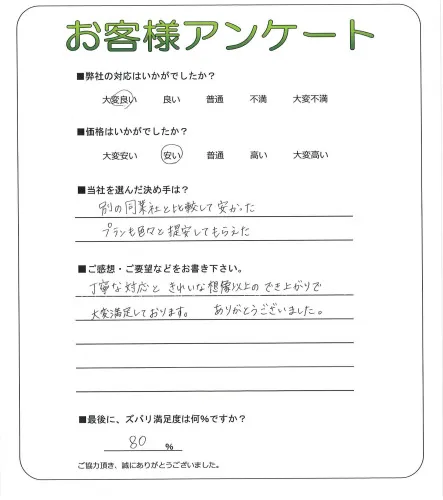 お客様アンケート
■弊社の対応はいかがでしたか?
大変良い 良い 普通 不満 大変不満
■価格はいかがでしたか?
大変安い 安い 普通 高い 大変高い
■当社を選んだ決め手は?
別の同業社と比較して安かった
プランも色々と提案してもらえた
■ご感想・ご要望などをお書き下さい。
丁寧な対応と きれいな想像以上の でき上がりで
大変満足しております。 ありがとうございました。
■最後に、ズバリ満足度は何%ですか?
80 %
ご協力頂き、誠にありがとうございました。